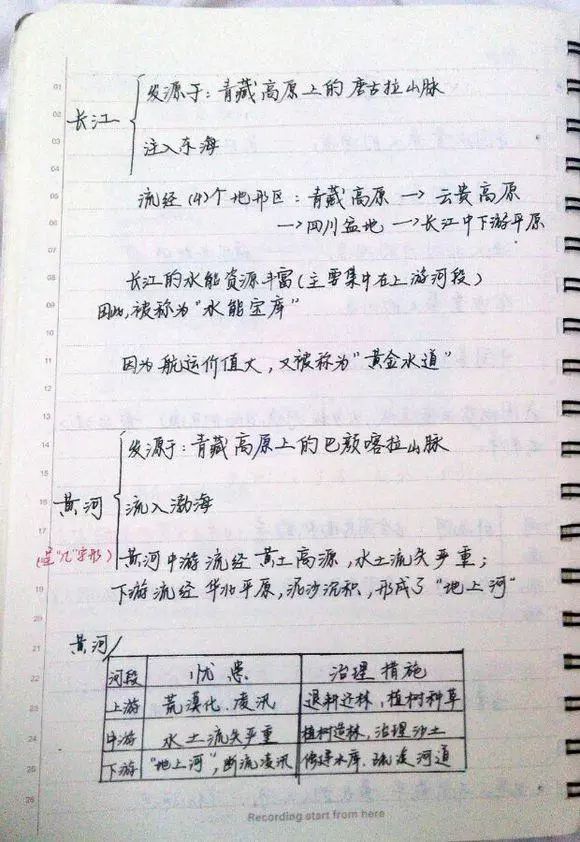 发源于：青藏高原上的唐古拉山脉
长江
注入东海
流经(4)个地形区：青藏高原→云贵高原
→四川盆地→长江中下游平原
长江的水能资源丰富(主要集中在上游河段)
因此,被称为"水能宝库"
因为航运价值大,又被称为"黄金水道"
发源于：青藏高原上的巴颜喀拉山脉
黄河
流入渤海
(呈"几"字形)
黄河中游流经黄土高源,水土流失严重;
下游流经华北平原,泥沙沉积,形成了"地上河"
黄河/
河段 忧患 治理措施
上游 荒漠化、凌汛 退耕还林,植树种草
中游 水土流失严重 植树造林,治理沙土
下游 "地上河",断流凌汛 修建水库、疏浚河道
01
02
03
04
05
06
07
08
09
10
11
12
13
14
15
16
17
18
19
20
21
22
23
24
25
26
Recording start from here